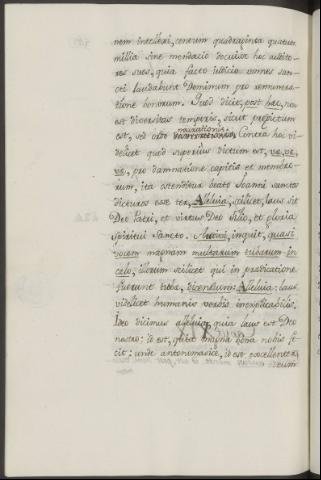 nem intellexi, centum quadraginta quatuor
millia sine mendacio docuisse hoc audito-
res suos, quia facto iudicio omnes san-
cti laudabunt Dominum pro remunera-
tione bonorum. Quod dicit, post haec, non
est diversitas temporis, sicut praefatum
est, sed ordo narrationis. Contra hoc vi-
delicet quod superius dictum est, vae, vae,
vae, pro damnatione capitis et membro-
rum, ita ostenditur beato Joanni sanctos
dicturos esse ter, Alleluia, scilicet, laus sit
Deo Patri, et virtus Deo Filio, et gloria
Spiritui Sancto. Audivi, inquit, quasi
vocem magnam multarum tubarum in
celo, illorum scilicet qui in predicatione
fuerunt tuba, dicentium: Alleluia: laus
videlicet humanis verbis inexplicabilis.
Ideo dicimus alleluia, quia laus est Deo
nostro: id est, quia magna bona nobis fe-
cit: unde antonomasice, id est excellenter